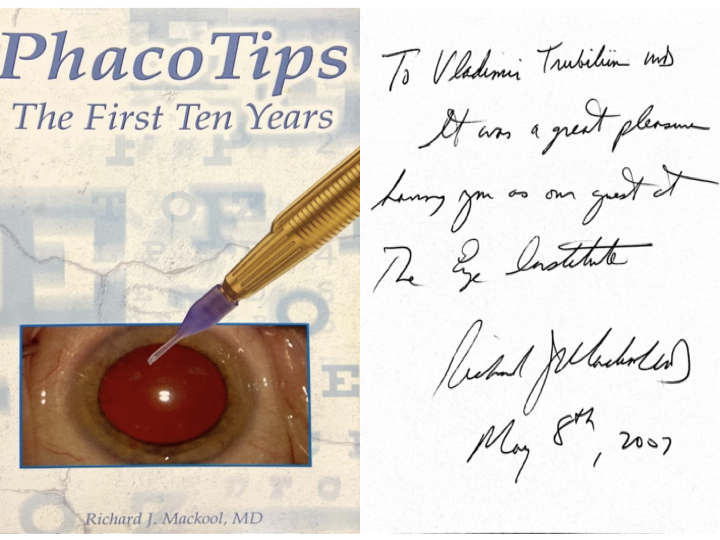 PhacoTips
The First Ten Years
Richard J. Mackool, MD
To Vladimir Trubilin MD
It was a great pleasure
having you as our guest at
The Eye Institute
Richard J Mackool MD
May 8th, 2007